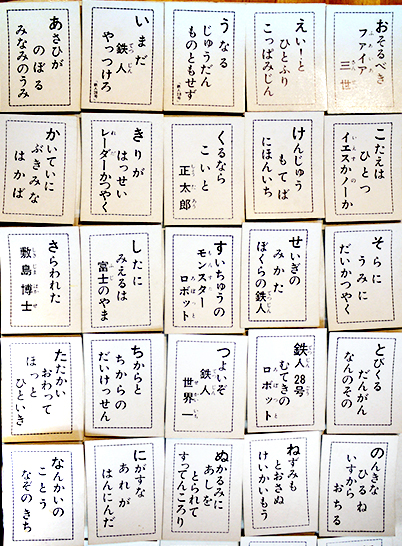 あさひが
のぼる
みなみのうみ
いまだ
鉄人
やっつけろ
うなる
じゅうだん
ものともせず
えいーと
ひとふり
こっぱみじん
おそるべき
ファイア
三世
かいていに
ぶきみな
はかば
きりが
はっせい
レーダーかつやく
くるなら
こいと
正太郎
けんじゅう
もてば
にほんいち
こたえは
ひとつ
イエスかノーか
さらわれた
敷島博士
したに
みえるは
富士のやま
すいちゅうの
モンスター
ロボット
せいぎの
みかた
ぼくらの鉄人
そらに
うみに
だいかつやく
たたかい
おわって
ほっと
ひといき
ちからと
ちからの
だいけっせん
つよいぞ
鉄人
世界一
鉄人28号
むてきの
ロボット
とびくる
だんがん
なんのその
なんかいの
ことう
なぞのきち
にがすな
あれが
はんにんだ
ぬかるみに
あしを
とられて
すってんころり
ねずみも
とおさぬ
けいかいもう
のんきな
ひるね
いすから
おちる